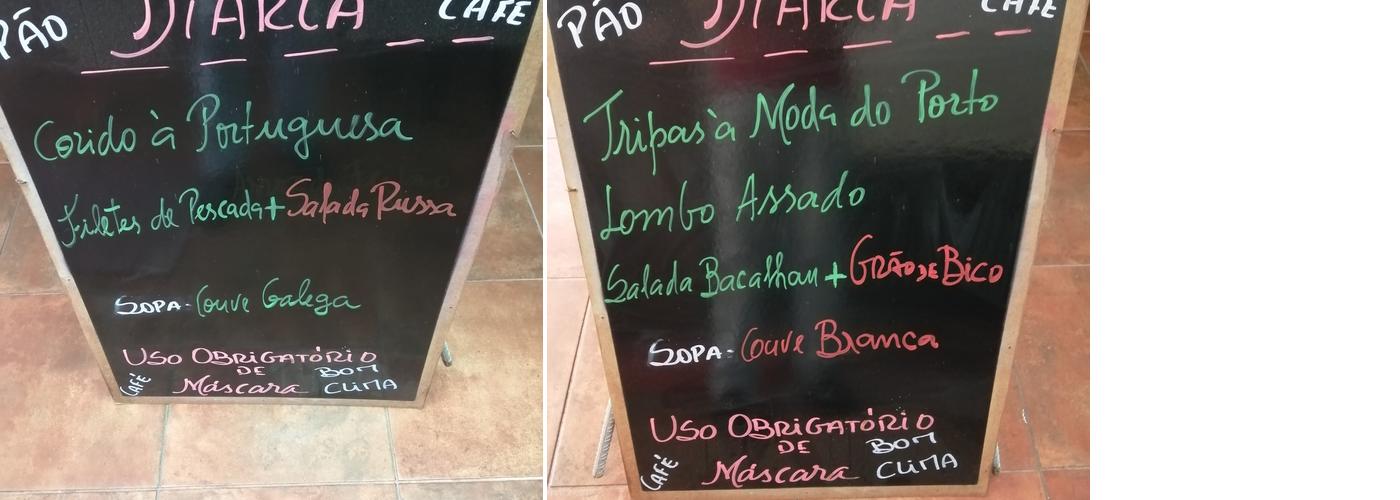 PÃO DIÁRIA CAFÉ
Cozido à Portuguesa
Filetes de Pescada + Salada Russa
SOPA - Couve Galega
USO OBRIGATÓRIO
DE
Máscara
CAFÉ
BOM
CLIMA
PÃO DIÁRIA CAFÉ
Tripas à Moda do Porto
Lombo Assado
Salada Bacalhau + GRÃO DE BICO
SOPA - Couve Branca
USO OBRIGATÓRIO
DE
Máscara
CAFÉ
BOM
CLIMA